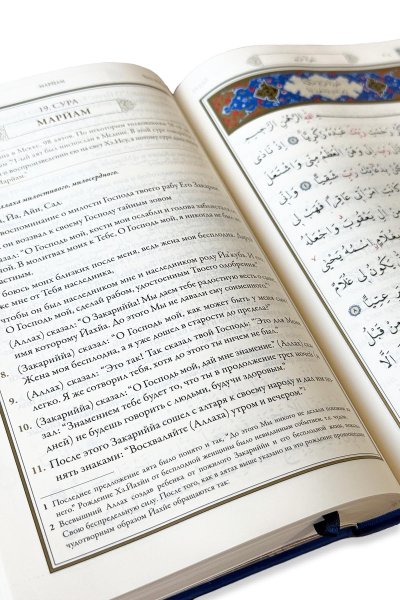 МАРЙАМ
19. СУРА
МАРЙАМ
в Мекке, 98 аятов. По некоторым толкованиям
Аллаха милостивого, милосердного.
Йа. Айн. Сад.
воспоминание о милости Господа твоего рабу Его Закарии
он воззвал к своему Господу тайным зовом
сказал: "О Господь мой, кости мои ослабли и голова заблистала
В молитвах моих к Тебе, О Господь мой, я никогда не был
частным.
боюсь моих близких после меня, ведь жена моя бесплодна.
же мне от Тебя наследника,
чтобы он был мне наследником и наследником роду Йа'куба. И его,
О Господь мой, сделай рабом, удостоенным Твоего одобрения"
(Аллах) сказал: "О Закариййа! Мы даем тебе радостную весть о сыне,
имя которому Йахйа. До этого Мы не давали ему соименного".
8. (Закариййа) сказал: "О Господь мой, как может быть у меня сын?
Жена моя бесплодна, а я уже дошел в старости до предела?
9. (Аллах) сказал: "Это так! Так сказал твой Господь: "Это для Меня
легко. Я же сотворил тебя, хотя до этого ты ничем не был".
10. (Закариййа) сказал: "О Господь мой, дай мне знамение." (Аллах) ска-
зал: "Знамением тебе будет то, что ты в продолжение трех ночей (и
дней) не будешь говорить с людьми, будучи здоровым."
11. После этого Закариййа сошел с алтаря к своему народу и дал им по-
нять знаками: "Восхваляйте (Аллаха) утром и вечером."
1 Последнее предложение аята было понято и так, "До этого Мы никого не делали подобным
него." Рождение Хз.Йахйи от бесплодной женщины было невиданным событием, т.к.
2 Всевышний Аллах создав ребенка от пожилого Закариййи и его бесплодной жены, показал
Свою беспредельную силу. После того, как в аятах выше указано на это рождение произошедшее
чудотворным образом Йахйе обращаются так:
الرَّحْمٰنِ الرَّحِيمِ
زَكَرِيَّا اِذْ نَادٰى
وَهَنَ الْعَظْمُ مِنِّى وَاشْتَعَلَ
شَقِيًّا وَاِنِّى
عَاقِرًا فَهَبْ لِى
اٰلِ يَعْقُوبَ وَاجْعَلْهُ
بِغُلَامٍ اسْمُهُ يَحْيٰى
يَكُونُ لِى غُلَامٌ
عِتِيًّا
مِنْ قَبْلُ
اَلَّا